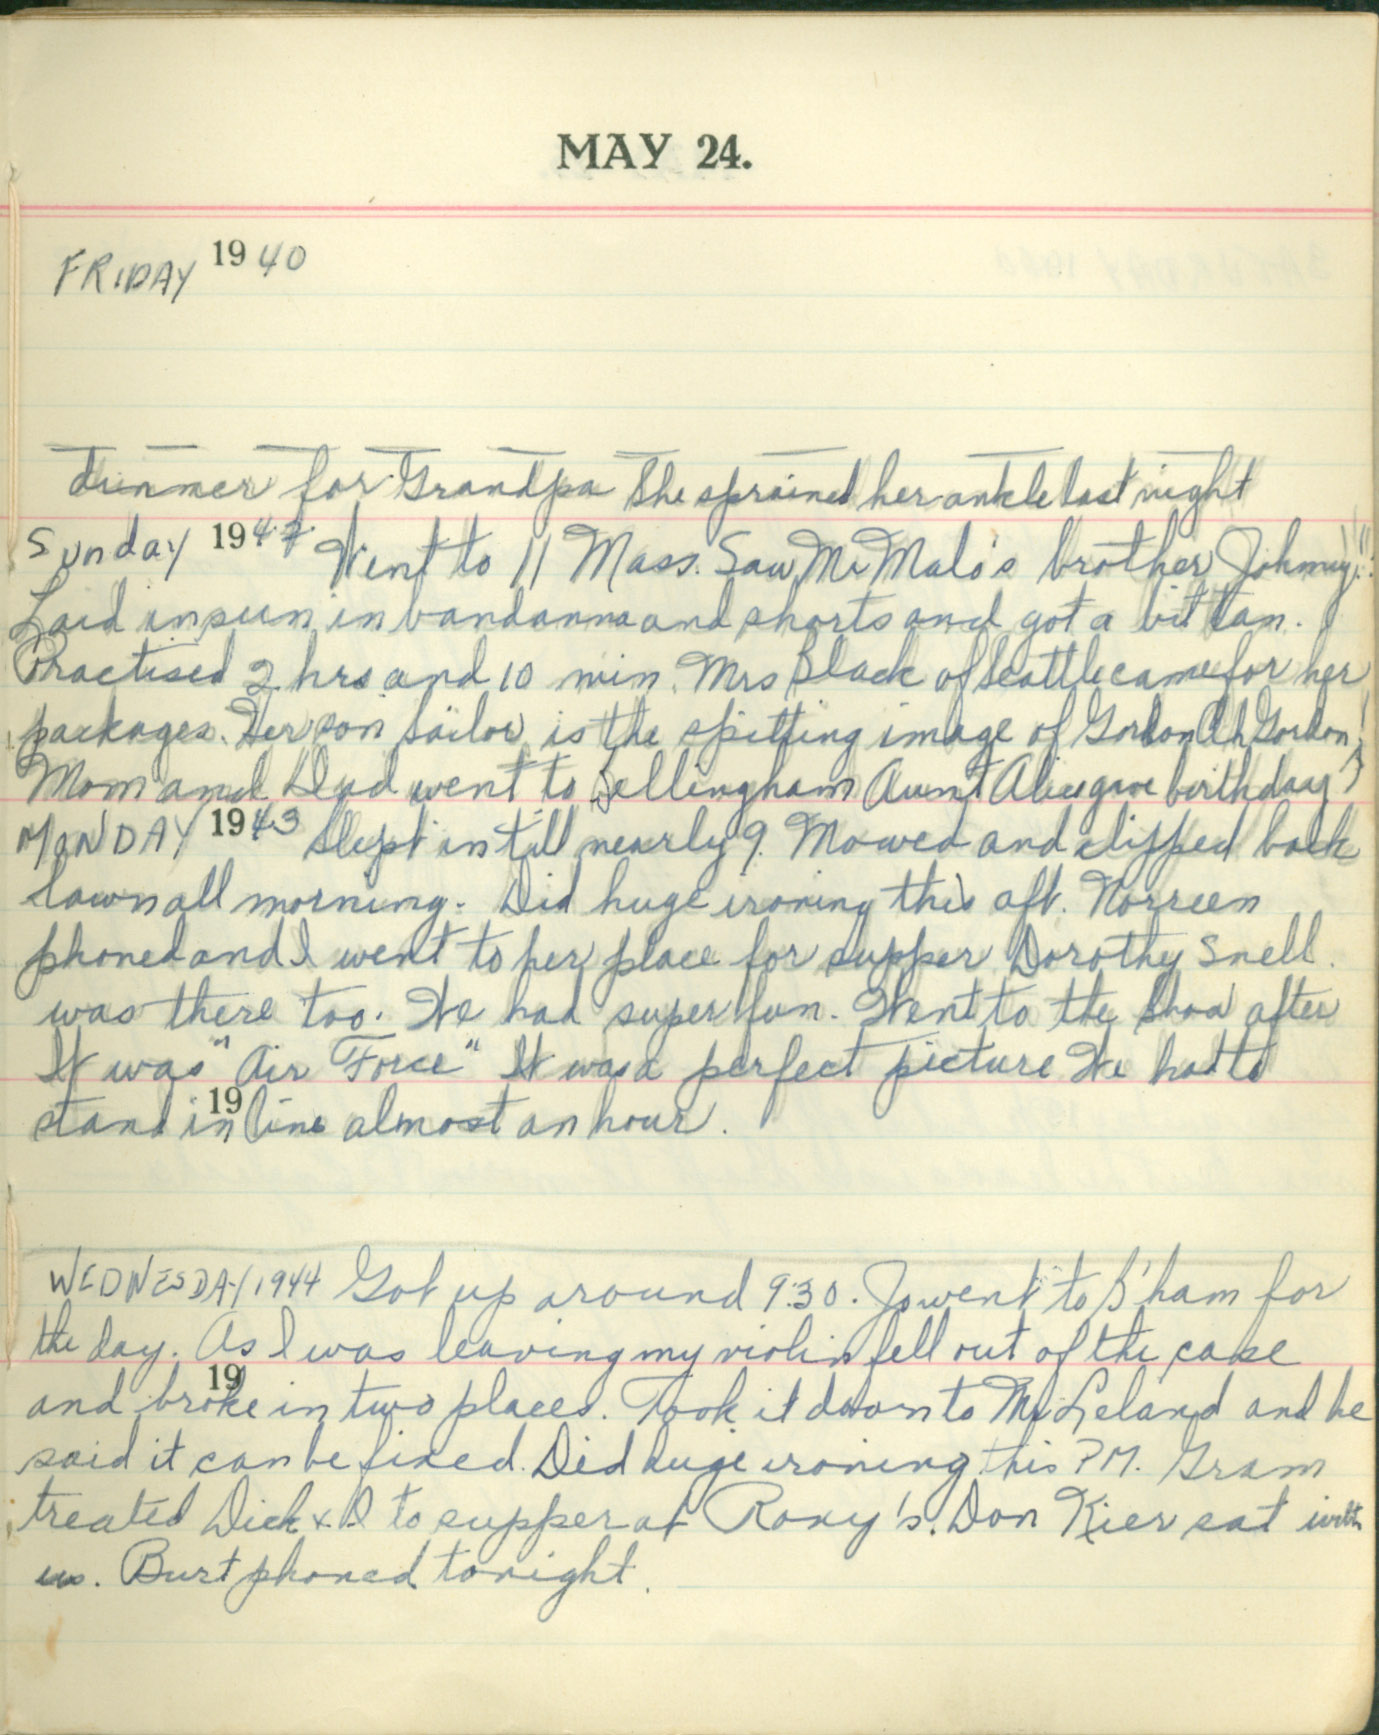 MAY 24.
FRIDAY 1940
dinner for Grandpa She sprained her ankle last night
Sunday 1942 Went to 11 Mass. Saw Mr Malo's brother Johnny!!
Laid in sun in bandanna and shorts and got a bit tan.
Practised 2 hrs and 10 min. Mrs Black of Seattle came for her
packages. Her son sailor, is the spitting image of Gordon Ah Gordon!
Mom and Dad went to Bellingham Aunt Alice gave birthday
MONDAY 1943 Slept in till nearly 9. Mowed and clipped back
lawn all morning. Did huge ironing this aft. Norreen
phoned and I went to her place for supper Dorothy Snell.
was there too. We had super fun. Went to the show after
It was "Air Force" It was a perfect picture We had to
19
stand in line almost an hour.
WEDNESDAY 1944 Got up around 9:30. Jo went to B'ham for
the day. As I was leaving my violin fell out of the case
19
and broke in two places. Took it down to Mr Leland and he
said it can be fixed. Did huge ironing this P.M. Gram
treated Dick & I to supper at Roxy's. Don Kier sat with
us. Burt phoned tonight.